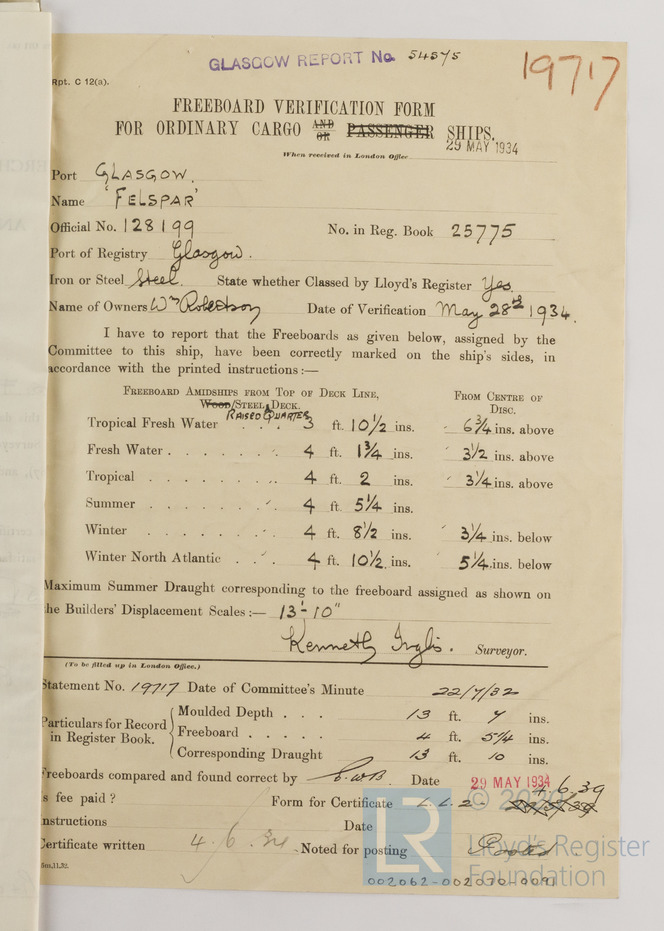 GLASGOW REPORT No. 54575
19717
Rpt. C 12(a).
FREEBOARD VERIFICATION FORM
FOR ORDINARY CARGO AND OR PASSENGER SHIPS.
29 MAY 1934
When received in London Office
Port GLASGOW.
Name 'FELSPAR'
Official No. 128199 No. in Reg. Book 25775
Port of Registry Glasgow.
Iron or Steel Steel. State whether Classed by Lloyd's Register Yes
Name of Owners Wm Robertson Date of Verification May 28th 1934.
I have to report that the Freeboards as given below, assigned by the
Committee to this ship, have been correctly marked on the ship's sides, in
accordance with the printed instructions:—
FREEBOARD AMIDSHIPS FROM TOP OF DECK LINE, FROM CENTRE OF
WOOD/STEEL DECK. DISC.
RAISED QUARTER
Tropical Fresh Water . . . 3 ft. 10½ ins. 6¾ ins. above
Fresh Water . . . . . . . 4 ft. 1¾ ins. 3½ ins. above
Tropical . . . . . . . 4 ft. 2 ins. 3¼ ins. above
Summer . . . . . . . 4 ft. 5¼ ins.
Winter . . . . . . . 4 ft. 8½ ins. 3¼ ins. below
Winter North Atlantic . . . 4 ft. 10½ ins. 5¼ ins. below
Maximum Summer Draught corresponding to the freeboard assigned as shown on
the Builders' Displacement Scales:— 13'-10"
Kenneth Inglis. Surveyor.
(To be filled up in London Office.)
Statement No. 19717 Date of Committee's Minute 22/7/32
Particulars for Record in Register Book.
Moulded Depth . . . 13 ft. 7 ins.
Freeboard . . . . . 4 ft. 5¼ ins.
Corresponding Draught 13 ft. 10 ins.
Freeboards compared and found correct by Date 29 MAY 1934
4.6.39
s fee paid ? Form for Certificate L.L.2-
nstructions Date
Certificate written 4.6.34 Noted for posting
5m,11,32.
© 2020
LR
Lloyd's Register
Foundation
002062-002070-0091